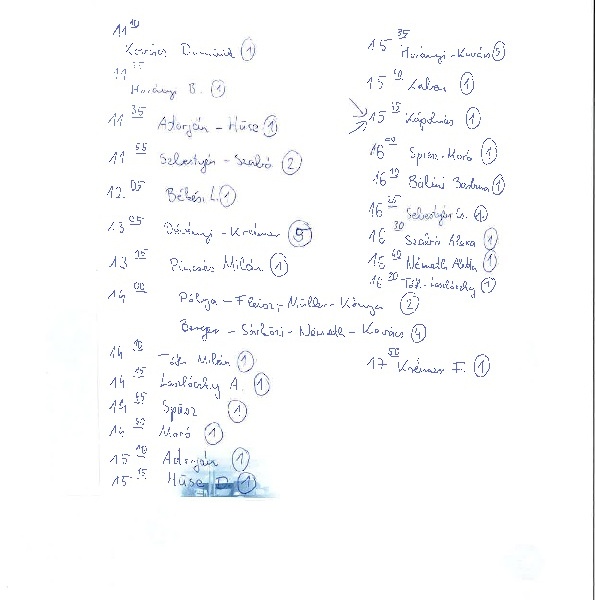 11 10
Kovács Dominik 1
11
Murányi B. 1
11 35 Adorján - Hüse 1
11 55 Sebestyén - Szabó 2
12 05 Békési L. 1
13 05 - Krémer 5
13 15 Pincsés Milán 1
14 00 Pálya - Fleisz - Müller - Kónya 2
Berger - Sárközi - Németh - Kovács 4
14 10 Tóth Milán 1
14 15 Laszlóczky A. 1
14 45 Spiesz 1
14 50 Maró 1
15 10 Adorján 1
15 15 Hüse D. 1
15 35 Murányi - Kovács 5
15 40 1
15 45 Kápolnás 1
16 00 Spiesz - Maró 1
16 10 Bálint Barbara 1
16 25 Sebestyén Cs. 1
16 30 Szabó 1
16 40 Németh 1
16 20 Tóth - Laszlóczky 1
17 50 Krémer F. 1